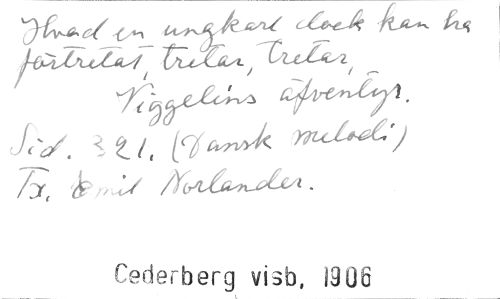 Hvad en ungkarl dock kan ha
förtretat, tretar, tretar,
Viggelins äfventyr.
Sid. 321. (Dansk melodi)
Tx. Emil Norlander.
Cederberg visb, 1906